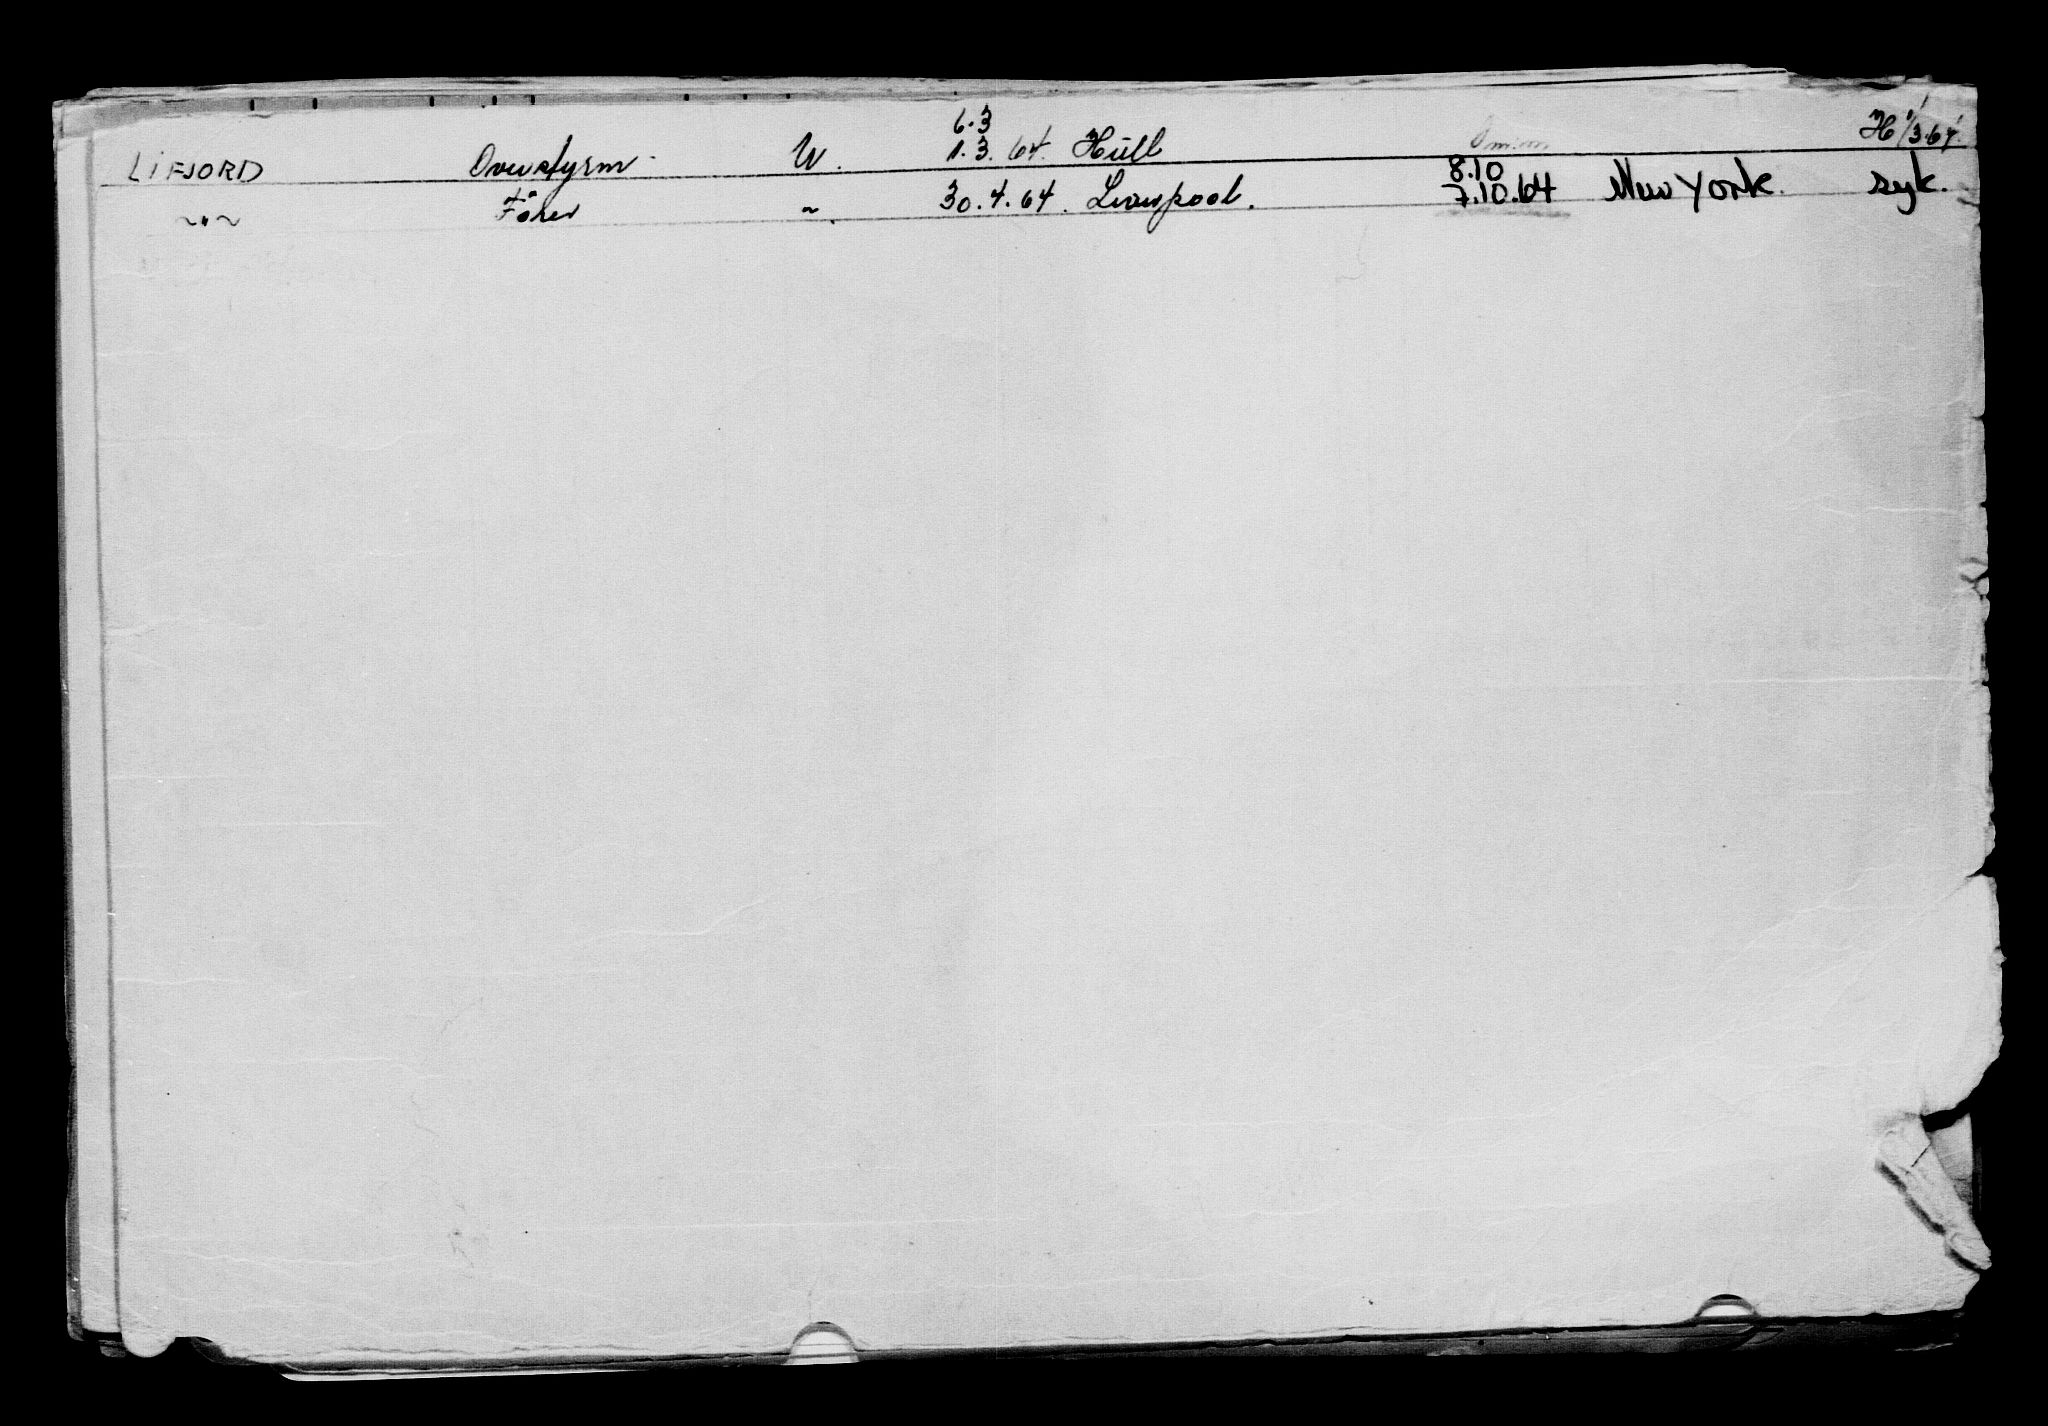 6.3
LIFJORD Overstyrm. U. 1.3.64. Hull H 1/3.64.
8.10
~"~ Fører ~. 30.4.64. Liverpool. 7.10.64 New York. syk.